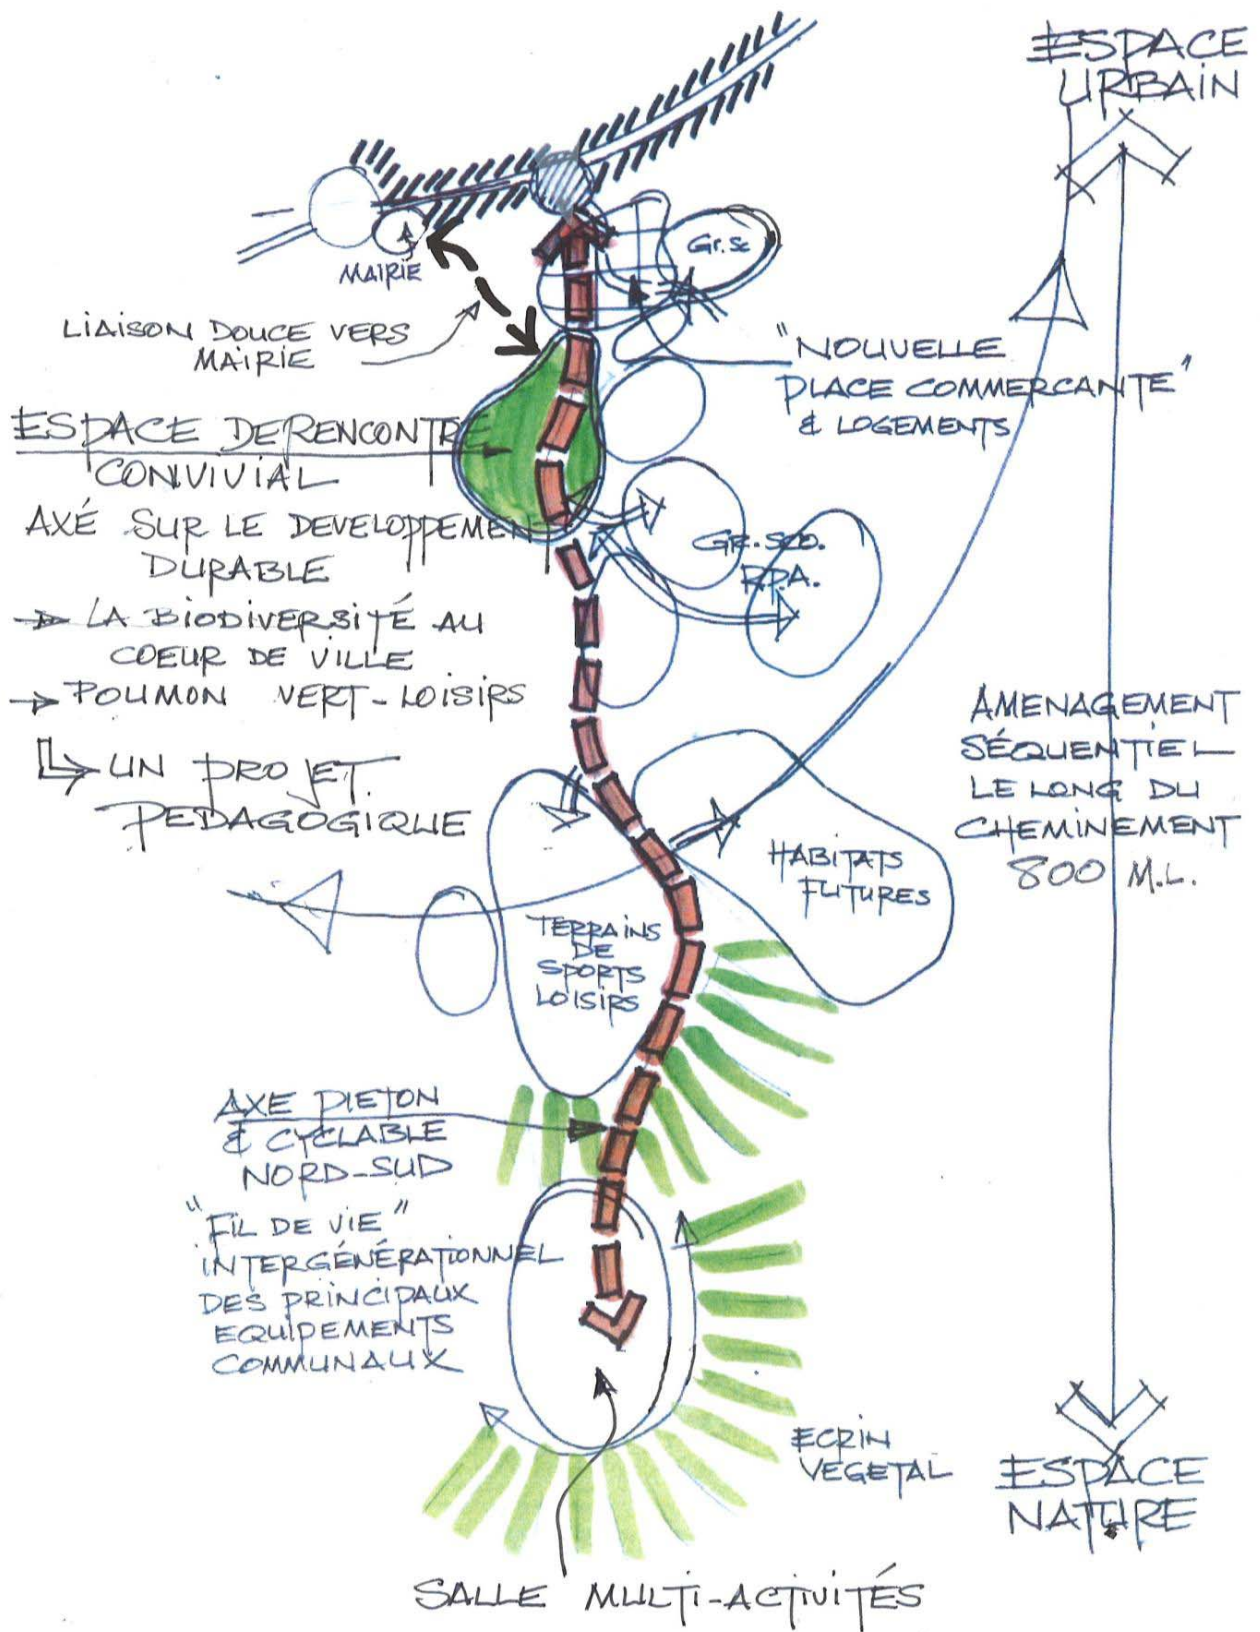 ESPACE
URBAIN
Gr.Sc
MAIRIE
LIAISON DOUCE VERS
MAIRIE
"NOUVELLE
PLACE COMMERCANTE"
& LOGEMENTS
ESPACE DE RENCONTRE
CONVIVIAL
AXÉ SUR LE DEVELOPPEMENT
DURABLE
→ LA BIODIVERSITÉ AU
COEUR DE VILLE
→ POUMON VERT-LOISIRS
↳ UN PROJET
PEDAGOGIQUE
GR.SCO.
R.P.A.
AMENAGEMENT
SÉQUENTIEL
LE LONG DU
CHEMINEMENT
800 M.L.
HABITATS
FUTURES
TERRAINS
DE
SPORTS
LOISIRS
AXE PIETON
& CYCLABLE
NORD-SUD
"FIL DE VIE"
INTERGÉNÉRATIONNEL
DES PRINCIPAUX
EQUIPEMENTS
COMMUNAUX
ECRIN
VEGETAL
ESPACE
NATURE
SALLE MULTI-ACTIVITÉS